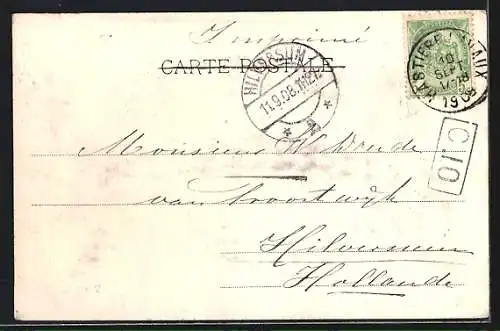 Imprimé
CARTE POSTALE
HILVERSUM
11.9.08.11-12V
HASTIÈRE-LAVAUX
10
SEPT
1908
C.10
Monsieur W.
van Grootwijk
Hilversum
Hollande